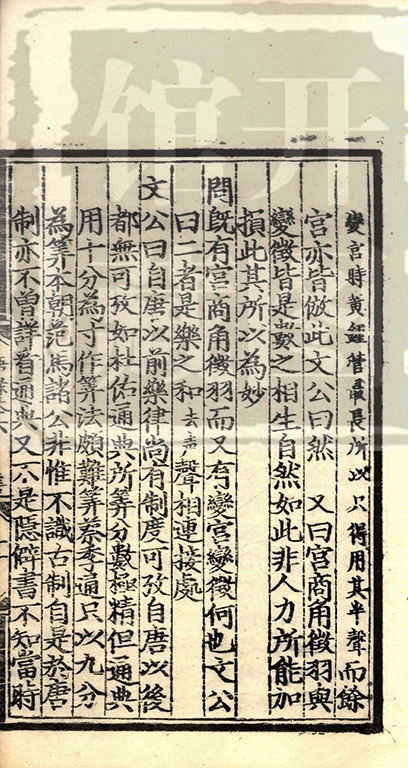 變宮時黃鍾管最長所以只得用其半聲而餘
宮亦皆倣此文公曰然　又曰宮商角徵羽與
變徵皆是數之相生自然如此非人力所能加
損此其所以為妙
問旣有宮商角徵羽而又有變宮變徵何也文公
曰二者是樂之和去声聲相連接處
文公曰自唐以前樂律尚有制度可攷自唐以後
都無可攷如杜佑通典所筭分數極精但通典
用十分為寸作筭法頗難筭蔡季通只以九分
為筭本朝范馬諸公非惟不識古制自是於唐
制亦不曾詳看通典又不是隱僻書不知當時